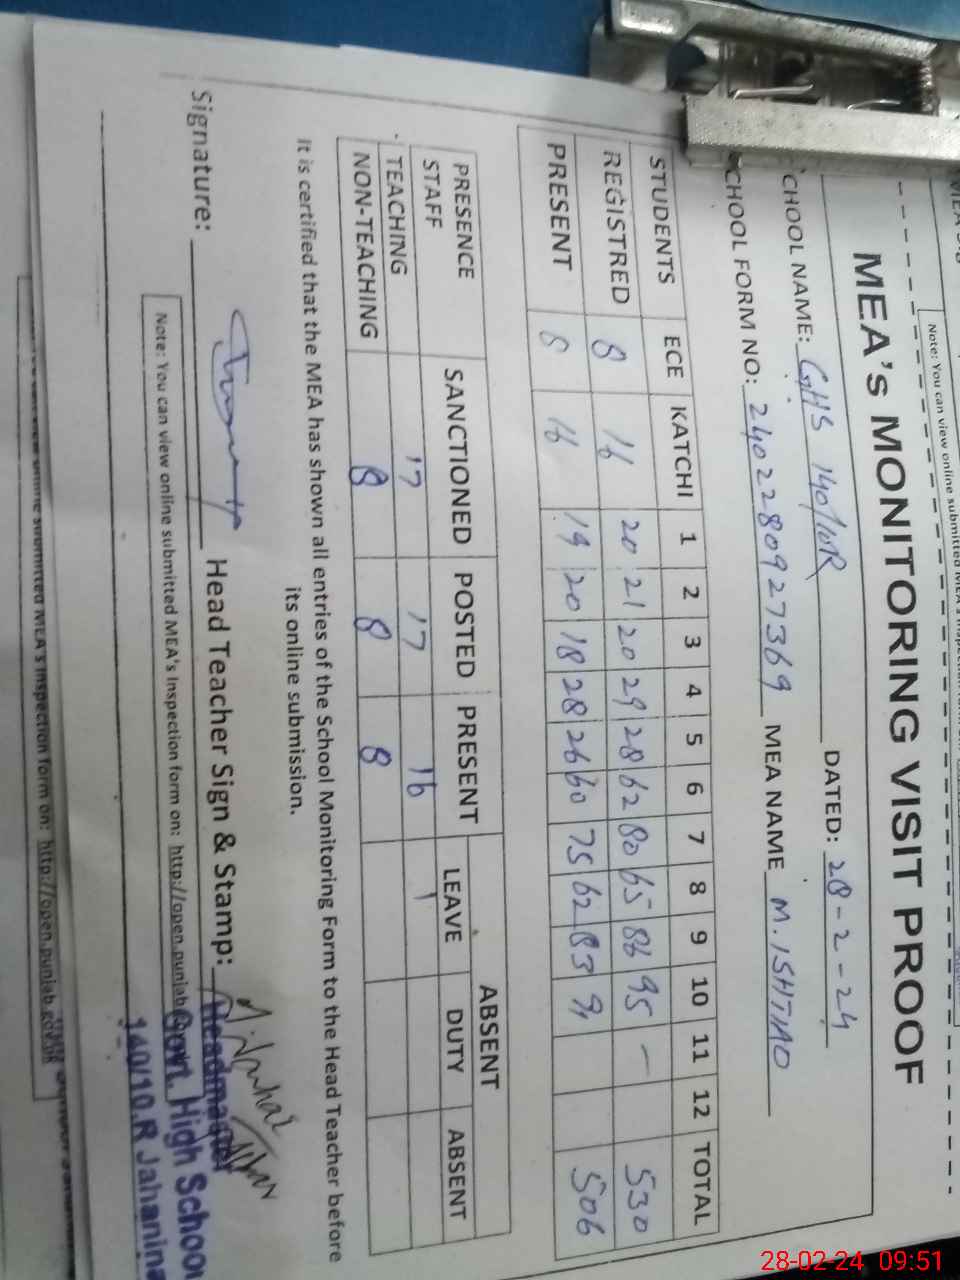 Note: You can view online submitted MEA's Inspection form
MEA's MONITORING VISIT PROOF
CHOOL NAME: GHS 140/10R DATED: 28-2-24
CHOOL FORM NO: 2402280927369 MEA NAME M. ISHTIAQ
STUDENTS ECE KATCHI 1 2 3 4 5 6 7 8 9 10 11 12 TOTAL
REGISTRED 8 16 20 21 20 29 28 62 80 65 86 95 - 530
PRESENT 8 16 19 20 18 28 26 60 75 62 83 91 506
PRESENCE STAFF SANCTIONED POSTED PRESENT ABSENT
LEAVE DUTY ABSENT
TEACHING 17 17 16 1
NON-TEACHING 8 8 8
It is certified that the MEA has shown all entries of the School Monitoring Form to the Head Teacher before
its online submission.
Signature: Head Teacher Sign & Stamp:
Headmaster
Govt. High School
140/10.R Jahania
Note: You can view online submitted MEA's Inspection form on: http://open.punjab
http://open.punjab.gov.pk
28-02-24 09:51